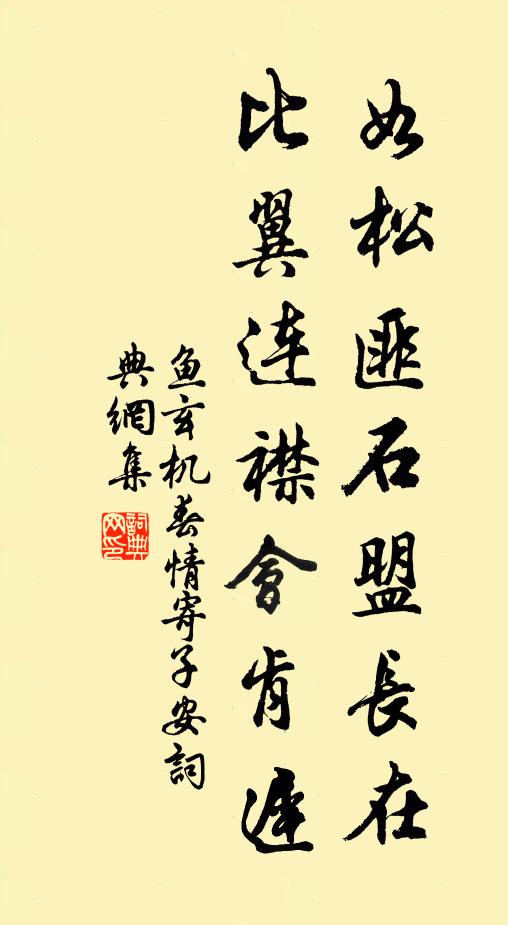 如松匪石盟長在
比翼連襟會肯遲
魚玄机春情寄子安詞
典網集
詞典網印